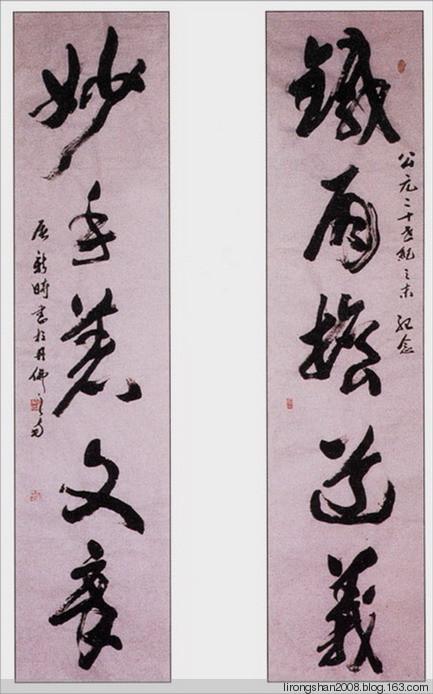 鐵肩擔道義
公元二十世紀之末 紀念
妙手著文章
新時書於丹佛之
lirongshan2008.blog.163.com